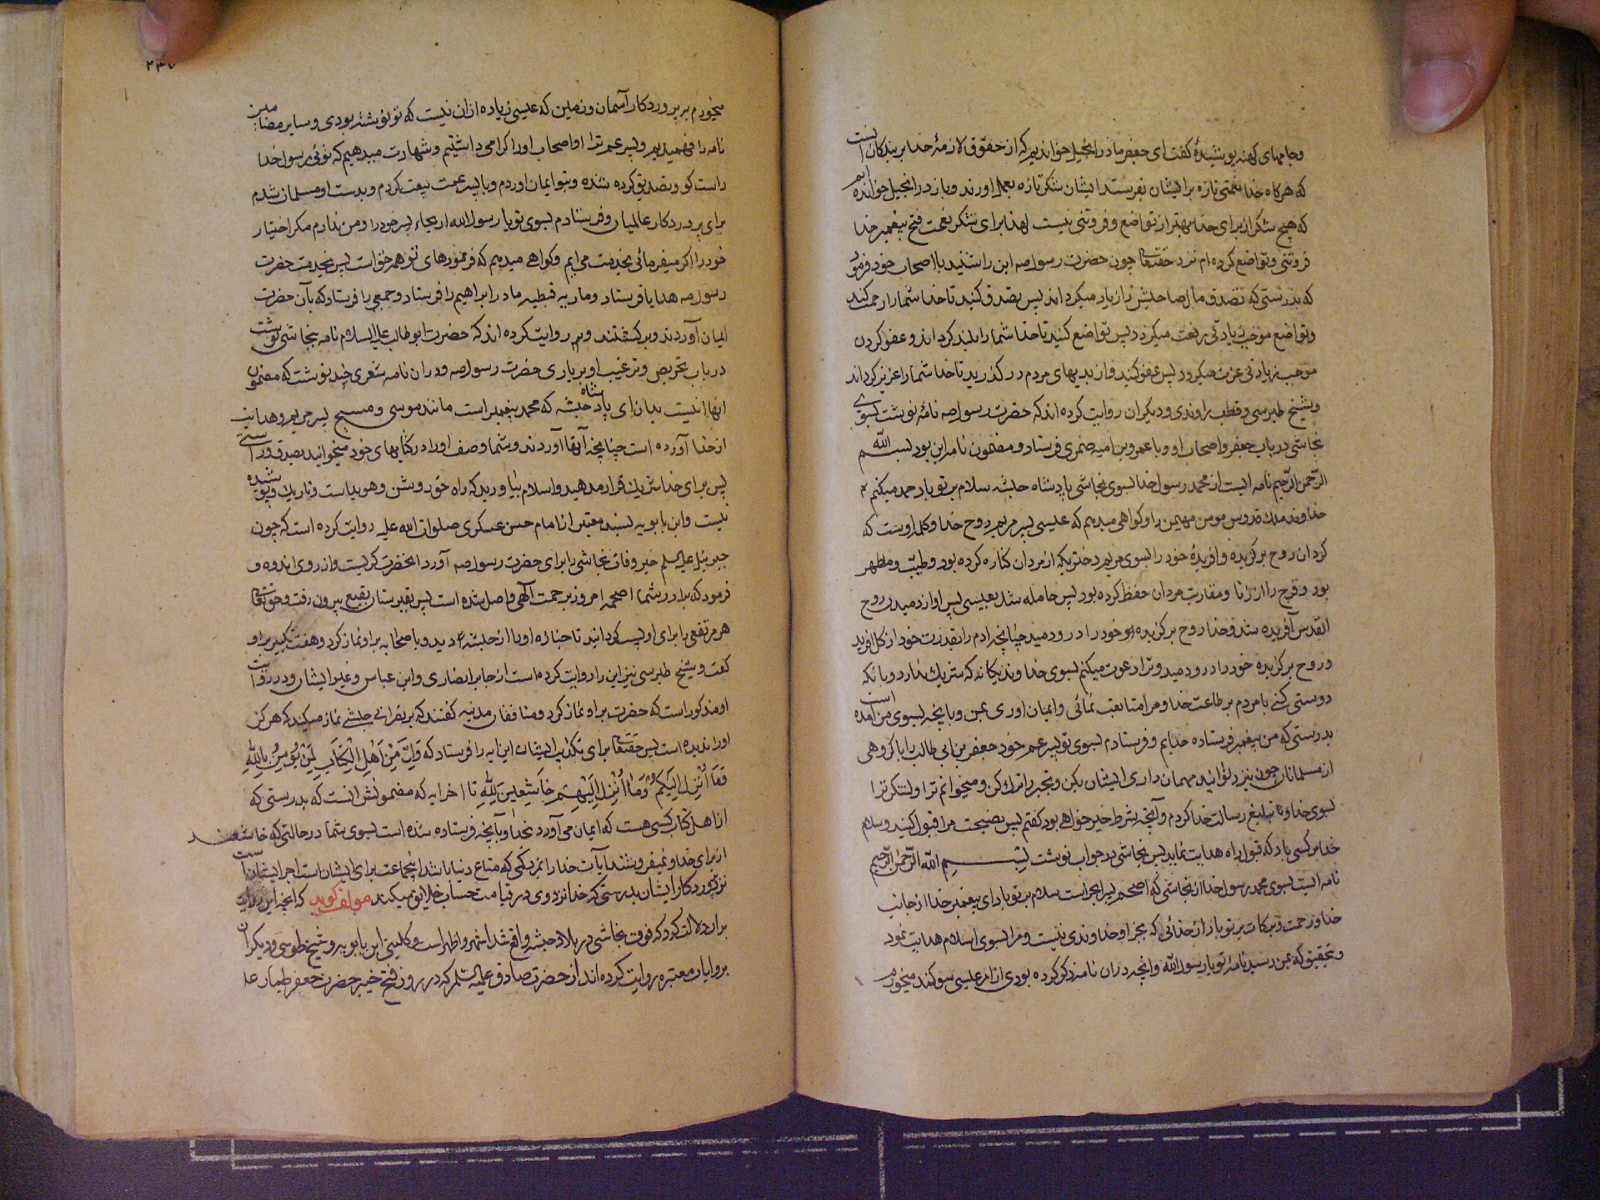 وجامهای کهنه پوشیدهٔ گفت ای جعفر ما در انجیل خوانده‌ایم که از حقوق لازمهٔ خدا بر بندگان انست
که هرگاه خدا نعمتی تازه برای ایشان بفرستد ایشان شکر تازه بعمل اورند و باز در انجیل خوانده ایم
که هیچ شکر از برای خدا بهتر از تواضع و فروتنی نیست لهذا برای شکر نعمت فتح پیغمبر خدا
فروتنی و تواضع کرده ام نزد حقتعالی چون حضرت رسول صه این را شنید با اصحاب خود فرمود
که بدرستی که تصدق مال صاحبش را زیاد میگرداند پس تصدق کنید تا خدا شما را رحمت کند
وتواضع موجب زیادتی رفعت میگردد پس تواضع کنید تا خدا شما را بلند گرداند و عفو کردن
موجب زیادتی عزت میگردد پس عفو کنید و از بدیهای مردم درگذرید تا خدا شما را عزیز گرداند
وشیخ طبرسی و قطب راوندی و دیگران روایت کرده اند که حضرت رسول صه نامهٔ نوشت بسوی
نجاشی در باب جعفر و اصحاب او و با عمرو بن امیه ضمری فرستاد و مضمون نامه این بود بسم الله
الرحمن الرحیم نامه ایست از محمد رسول خدا بسوی نجاشی پادشاه حبشه سلام بر تو باد حمد میکنم
خداوند ملک قدوس مومن مهیمن را و گواهی میدهم که عیسی پسر مریم روح خدا و کلمه اوست که
کرد ان روح برگزیده و افریدهٔ خود را بسوی مریم دختر بکه از مردان کناره کرده بود و طیب و مطهر
بود و فرج را از زنا و مقاربت مردان حفظ کرده بود پس حامله شد بعیسی پس او از دمیدن روح
القدس آفریده شد و خدا روح برگزیده خود را در او دمید چنانچه ادم را بقدرت خود از گل افرید
و روح برگزیده خود را در او دمید و ترا دعوت میکنم بسوی خداوند یگانه که شریک ندارد و بانکه
دوستی کنے با مردم بر طاعت خدا و مرا متابعت نمائی و ایمان اوری بمن و بانچه بسوی من آمده است
بدرستی که من پیغمبر فرستاده خدایم و فرستادم بسوی تو پسر عم خود جعفر بن ابی طالب را با گروهی
از مسلمانان چون نزد تو ایند مهمان داری ایشان بکن و تجبر را ترک کن و میخوانم ترا و لشکر ترا
بسوی خدا و تبلیغ رسالت خدا کردم و آنچه شرط خیر خواهی بود گفتم پس نصیحت مرا قبول کنید وسلام
خدا بر کسی باد که قبول راه هدایت نماید پس نجاشی در جواب نوشت بسم الله الرحمن الرحیم
نامه ایست بسوی محمد رسول خدا از نجاشی که اصحم پسر ابجر است سلام بر تو باد ای پیغمبر خدا از جانب
خدا و رحمت و برکات بر تو باد از خدائی که بجز او خداوندی نیست و مرا بسوی اسلام هدایت نمود
وبتحقیق که بمن رسید نامهٔ تو یا رسول الله و انچه در ان نامه ذکر کرده بودی از امر عیسی سوگند میخورم
۲۳۷
میخورم بپروردگار آسمان و زمین که عیسی زیاده از ان نیست که تو نوشته بودی و سایر مضامین
نامه را فهمیدیم و پسر عم ترا و اصحاب او را گرامی داشتیم و شهادت میدهیم که توئی رسول خدا
راست گو و تصدیق کرده شده و بتو ایمان اوردم و با پسر عمت بیعت کردم و بدست او مسلمان شدم
برای پروردگار عالمیان و فرستادم بسوی تو یا رسول الله اریحاء پسر خود را و من ندارم مگر اختیار
خود را اگر میفرمائی بخدمت می ایم و گواهی میدهم که فرمودهای تو همه حق است پس بخدمت حضرت
رسول صه هدایا فرستاد و ماریه قبطیه مادر ابراهیم را فرستاد و جمعی را فرستاد که بآن حضرت
ایمان آوردند و برگشتند و نیز روایت کرده اند که حضرت ابوطالب علیه السلام نامه بنجاشی نوشت
در باب تحریص و ترغیب او بر یاری حضرت رسول صه و در ان نامه شعری چند نوشت که مضمون
انها اینست بدان ای پادشاه حبشه که محمد پیغمبر است مانند موسی و مسیح پسر مریم و هدایت
از خدا آورده است چنانچه آنها آوردند و شما وصف او را در کتابهای خود میخوانید بصدق و راستی
پس برای خدا شریک قرار مدهید و اسلام بیاورید که راه حق روشن و هویداست و تاریک و پوشیده
نیست و ابن بابویه بسند معتبر از امام حسن عسکری صلوات الله علیه روایت کرده است که چون
جبرئیل علیه السلم خبر وفات نجاشی را برای حضرت رسول صه آورد انحضرت گریست و از روی اندوه و
فرمود که برادر شما اصحمه امروز برحمت آلهی واصل شده است پس بقبرستان بقیع بیرون رفت و حقتعالی
هر مرتفعی را برای او پست گردانید تا جنازه او را از حبشه دید و با صحابه بر او نماز کرد و هفت تکبیر بر او
گفت و شیخ طبرسی نیز این را روایت کرده است از جابر انصاری و ابن عباس و غیر ایشان و در روایت
او مذکور است که حضرت بر او نماز کرد و منافقان مدینه گفتند که بر نصرانی حبشے نماز میکند که هرگز
او را ندیده است پس حقتعالی برای تکذیب ایشان این ایه را فرستاد که وَاِنَّ مِنْ اَهْلِ الْکِتَابِ لَمَنْ یُؤْمِنُ بِاللهِ
وَمَا اُنْزِلَ اِلَیْکُمْ وَمَا اُنْزِلَ اِلَیْهِمْ خَاشِعِینَ لِلّٰهِ تا اخر ایه که مضمونش انست که بدرستی که
از اهل کتاب کسی هست که ایمان می آورد بخدا و بآنچه فرستاده شده است بسوی شما در حالتی که خاشعند
از برای خدا و نمیفروشند آیات خدا را بمزد کمی که متاع دنیا باشد انجماعت برای ایشان است اجر ایشان
نزد پروردگار ایشان بدرستی که خدا بزودی در قیامت حساب خلایق میکند مولف گوید که انچه این روایت
بران دلالت کرد که فوت نجاشی در بلاد حبشه واقع شد اشهر و اظهر است و کلینی ابن بابویه و شیخ طوسی و دیگران
بروایات معتبره روایت کرده اند از حضرت صادق علیه السلم که در روز فتح خیبر حضرت جعفر طیار علیه